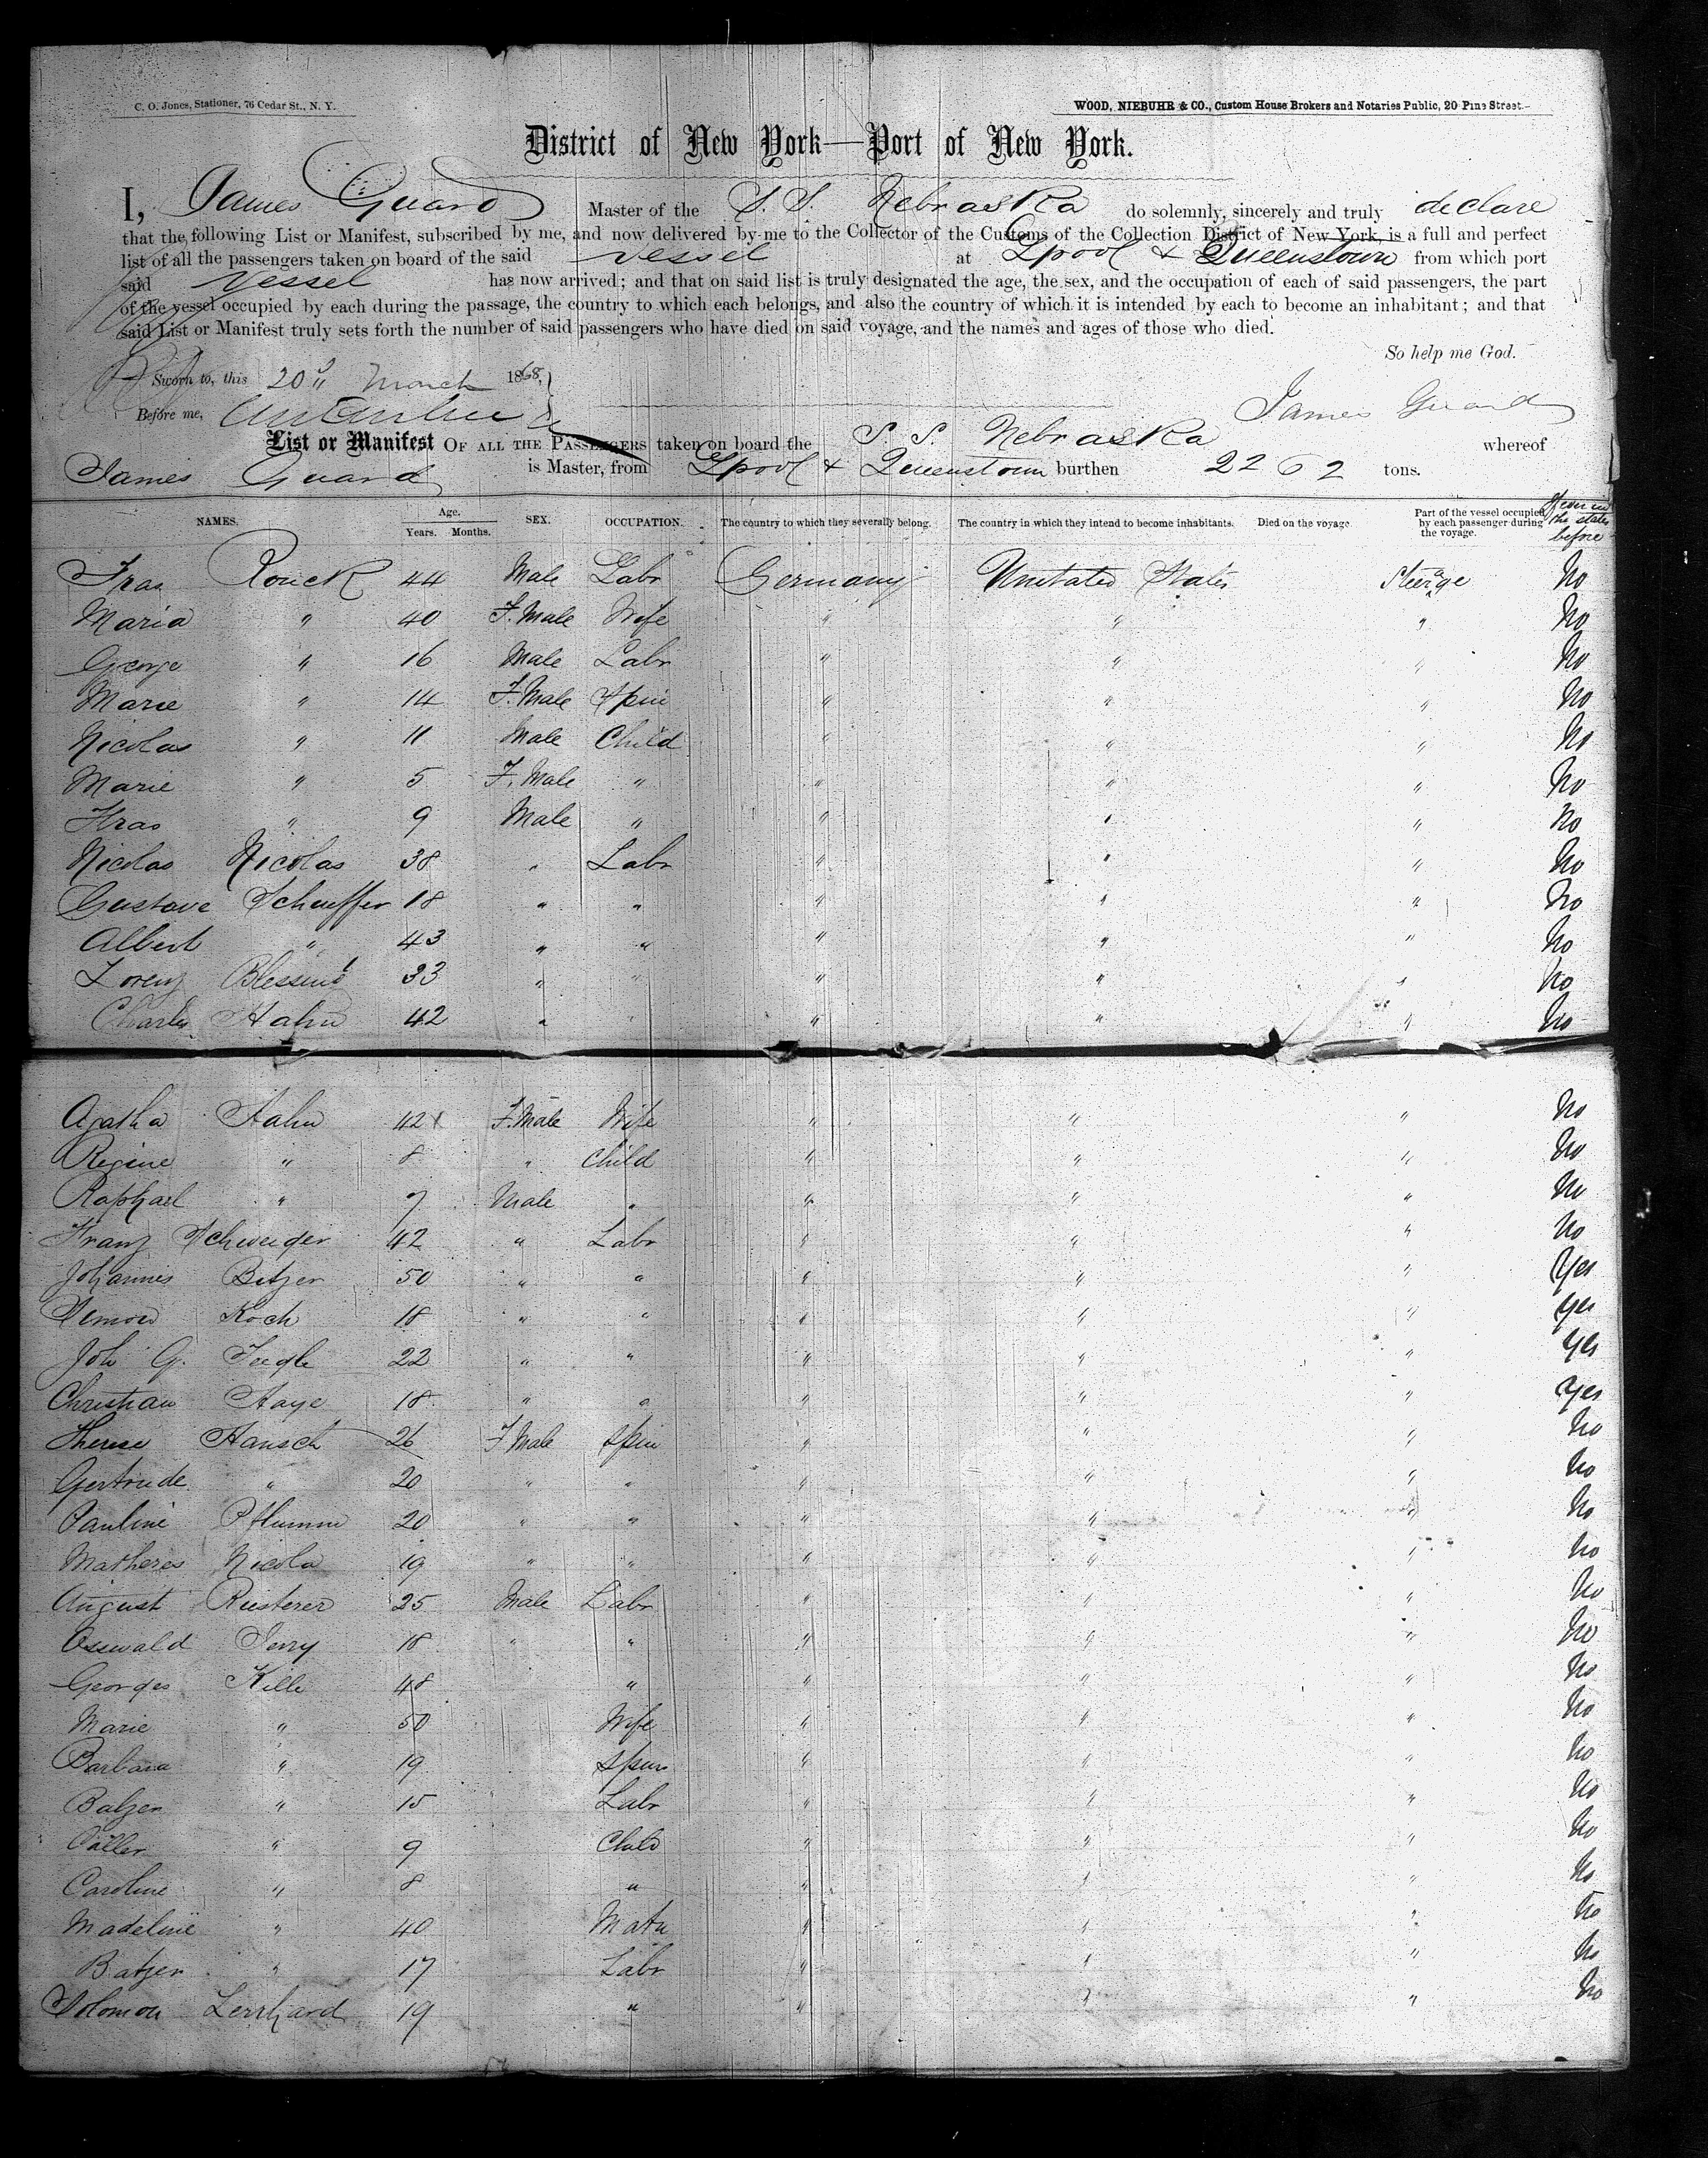 C. O. Jones, Stationer, 76 Cedar St., N. Y.
WOOD, NIEBUHR & CO., Custom House Brokers and Notaries Public, 20 Pine Street.
District of New York—Port of New York.
I, James Guard Master of the S. S. Nebraska do solemnly, sincerely and truly declare
that the following List or Manifest, subscribed by me, and now delivered by me to the Collector of the Customs of the Collection District of New York, is a full and perfect
list of all the passengers taken on board of the said Vessel at Lpool & Queenstown from which port
said Vessel has now arrived; and that on said list is truly designated the age, the sex, and the occupation of each of said passengers, the part
of the vessel occupied by each during the passage, the country to which each belongs, and also the country of which it is intended by each to become an inhabitant; and that
said List or Manifest truly sets forth the number of said passengers who have died on said voyage, and the names and ages of those who died.
So help me God.
Sworn to, this 20" March 1868,
Before me, James Guard
List or Manifest OF ALL THE PASSENGERS taken on board the S. S. Nebraska whereof
James Guard is Master, from Lpool & Queenstown burthen 2262 tons.
NAMES. Age. Years. Months. SEX. OCCUPATION. The country to which they severally belong. The country in which they intend to become inhabitants. Died on the voyage. Part of the vessel occupied by each passenger during the voyage. If ever in the states before
Fras Rouck 44 Male Labr Germany Unitated States Steerage No
Maria " 40 F. Male Wife " " " No
George " 16 Male Labr " " " No
Marie " 14 F. Male Spin " " " No
Nicolas " 11 Male Child " " " No
Marie " 5 F. Male " " " " No
Fras " 9 Male " " " " No
Nicolas Nicolas 38 " Labr " " " No
Gustave Schauffer 18 " " " " " No
Albert " 43 " " " " " No
Lorenz Blessing 33 " " " " " No
Charles Hahn 42 " " " " " No
Agatha Hahn 42 F. Male Wife " " " No
Regine " 8 " Child " " " No
Raphael " 7 Male " " " " No
Franz Schweiger 42 " Labr " " " No
Johannes Betzer 50 " " " " " Yes
Simon Koch 18 " " " " " Yes
Joh G. 22 " " " " " Yes
Christian Haye 18 " " " " " Yes
Therese Hansch 26 F Male Spin " " " No
Gertrude " 20 " " " " " No
Pauline Pflumm 20 " " " " " No
Matheres Nicola 19 " " " " " No
August Riesterer 25 Male Labr " " " No
Osswald Jerry 18 " " " " " No
Georges Kille 48 " " " " No
Marie " 50 Wife " " " No
Barbara " 19 Spin " " " No
Balzer " 15 Labr " " " No
" 9 Child " " " No
Caroline " 8 " " " " No
Madeline " 40 Matn " " " No
Batzer " 17 Labr " " " No
Solomon Lerrhard 19 " " " " No